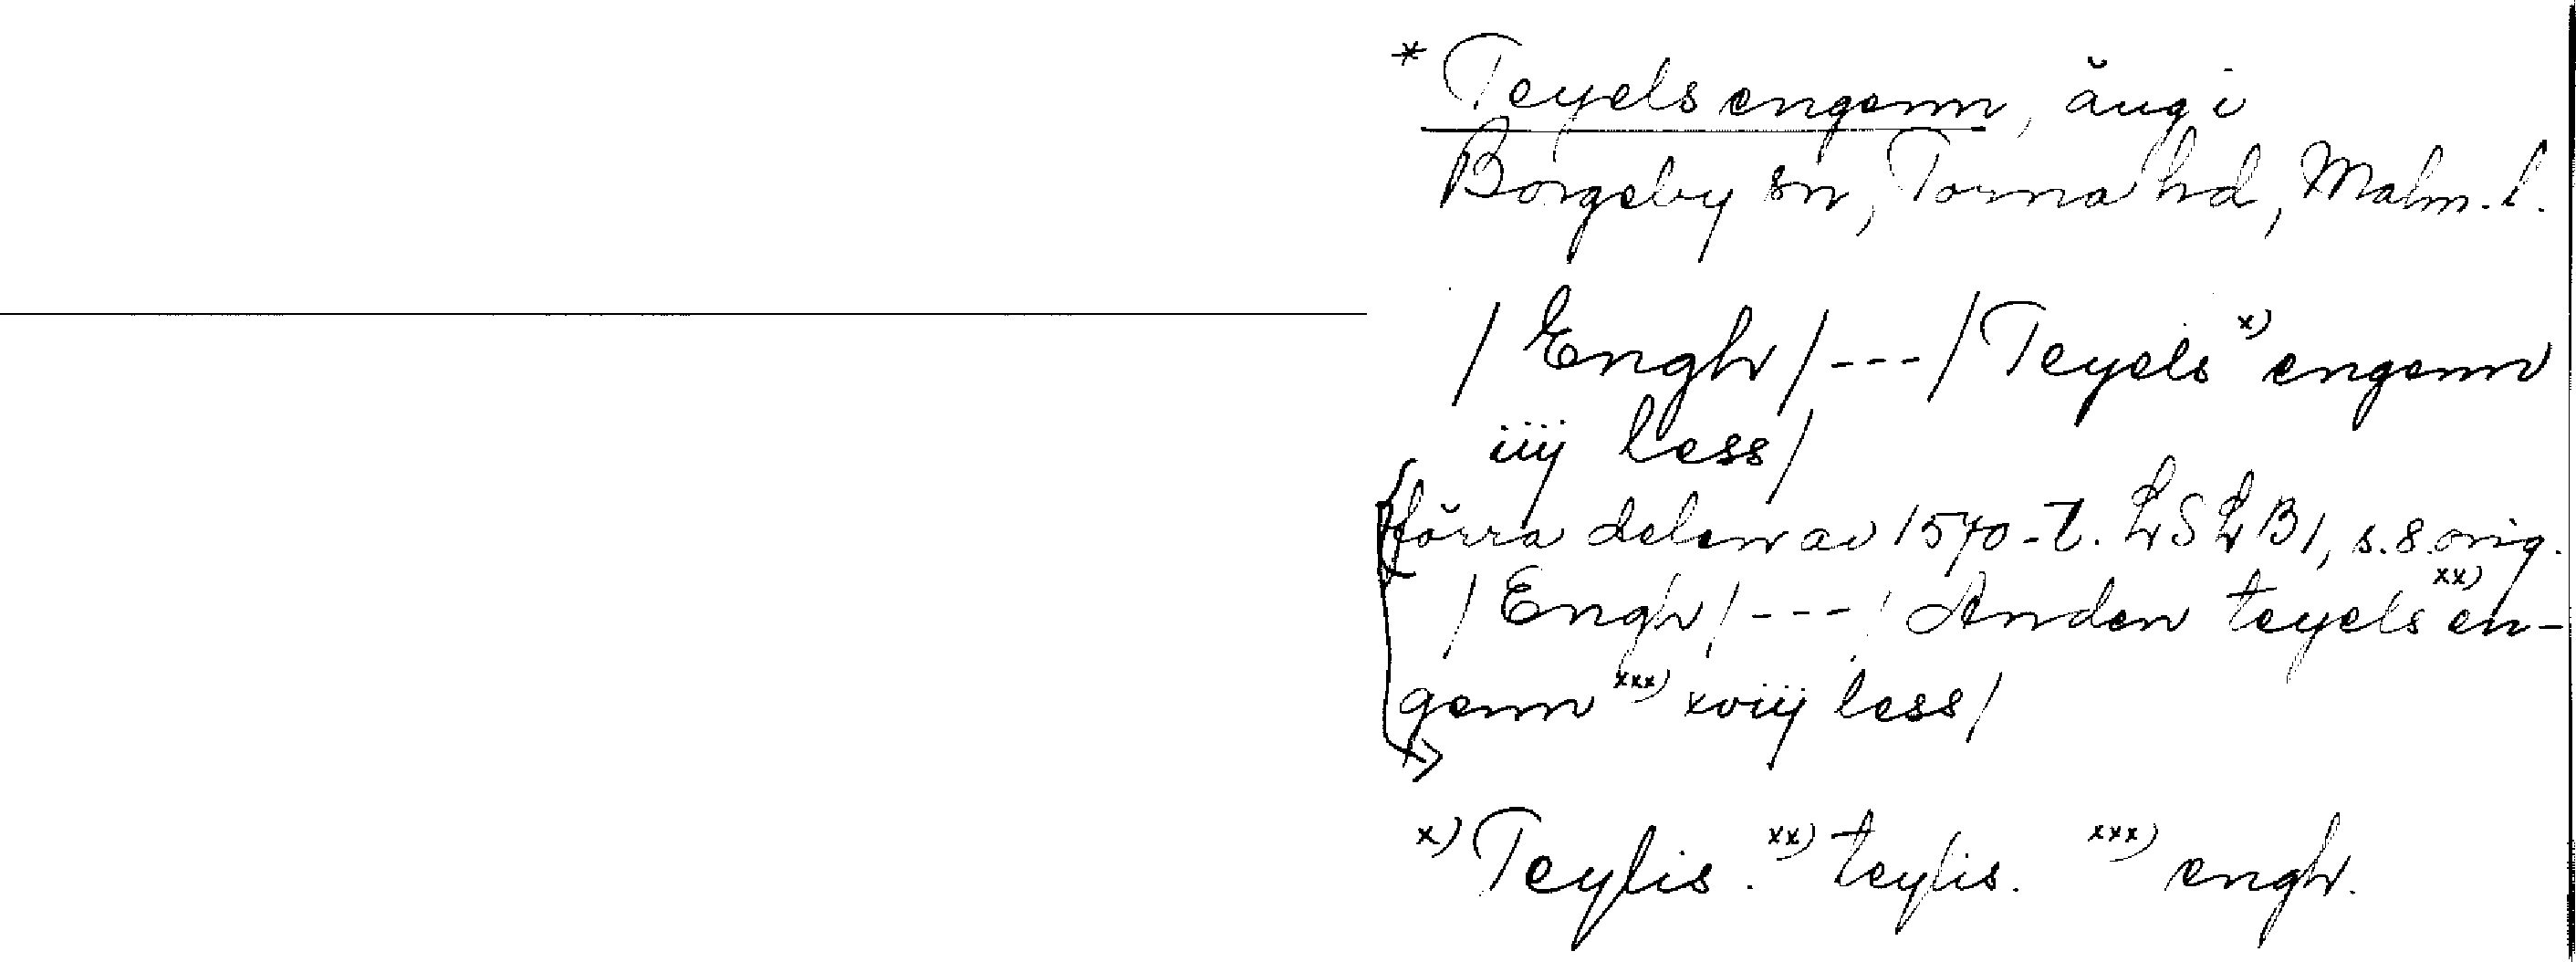 * Teyels engenn, äng i
Borgeby sn, Torna hd, Malm. l.
/ Engh / --- / Teyels x) engenn
iiij less /
förra delen av 1570-t. LSLB 1, s. 8 orig.
/ Engh / --- / Anden teyels xx) en-
genn xxx) xviij less /
x) Teylis. xx) teylis. xxx) engh.